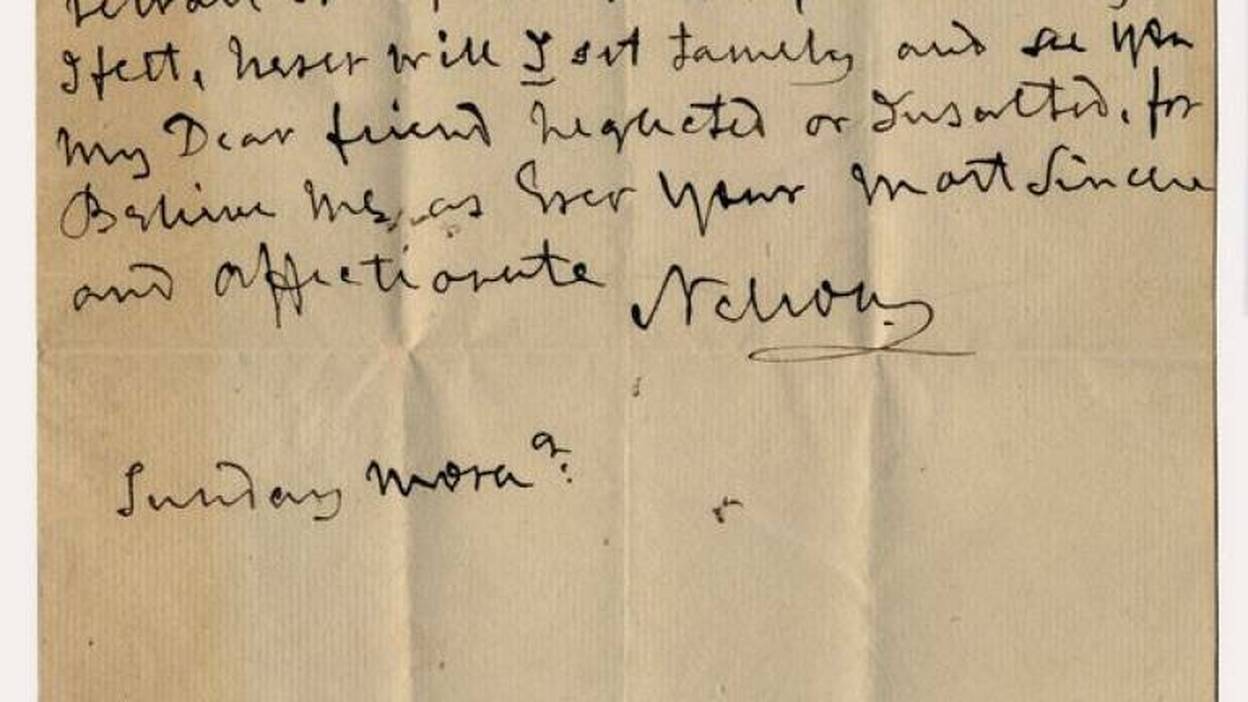 I felt, never will I sit tamely and see you
My Dear friend neglected or Insulted, for
Believe Me, as Ever your most Sincere
and affectionate Nelson
Sunday Morng: